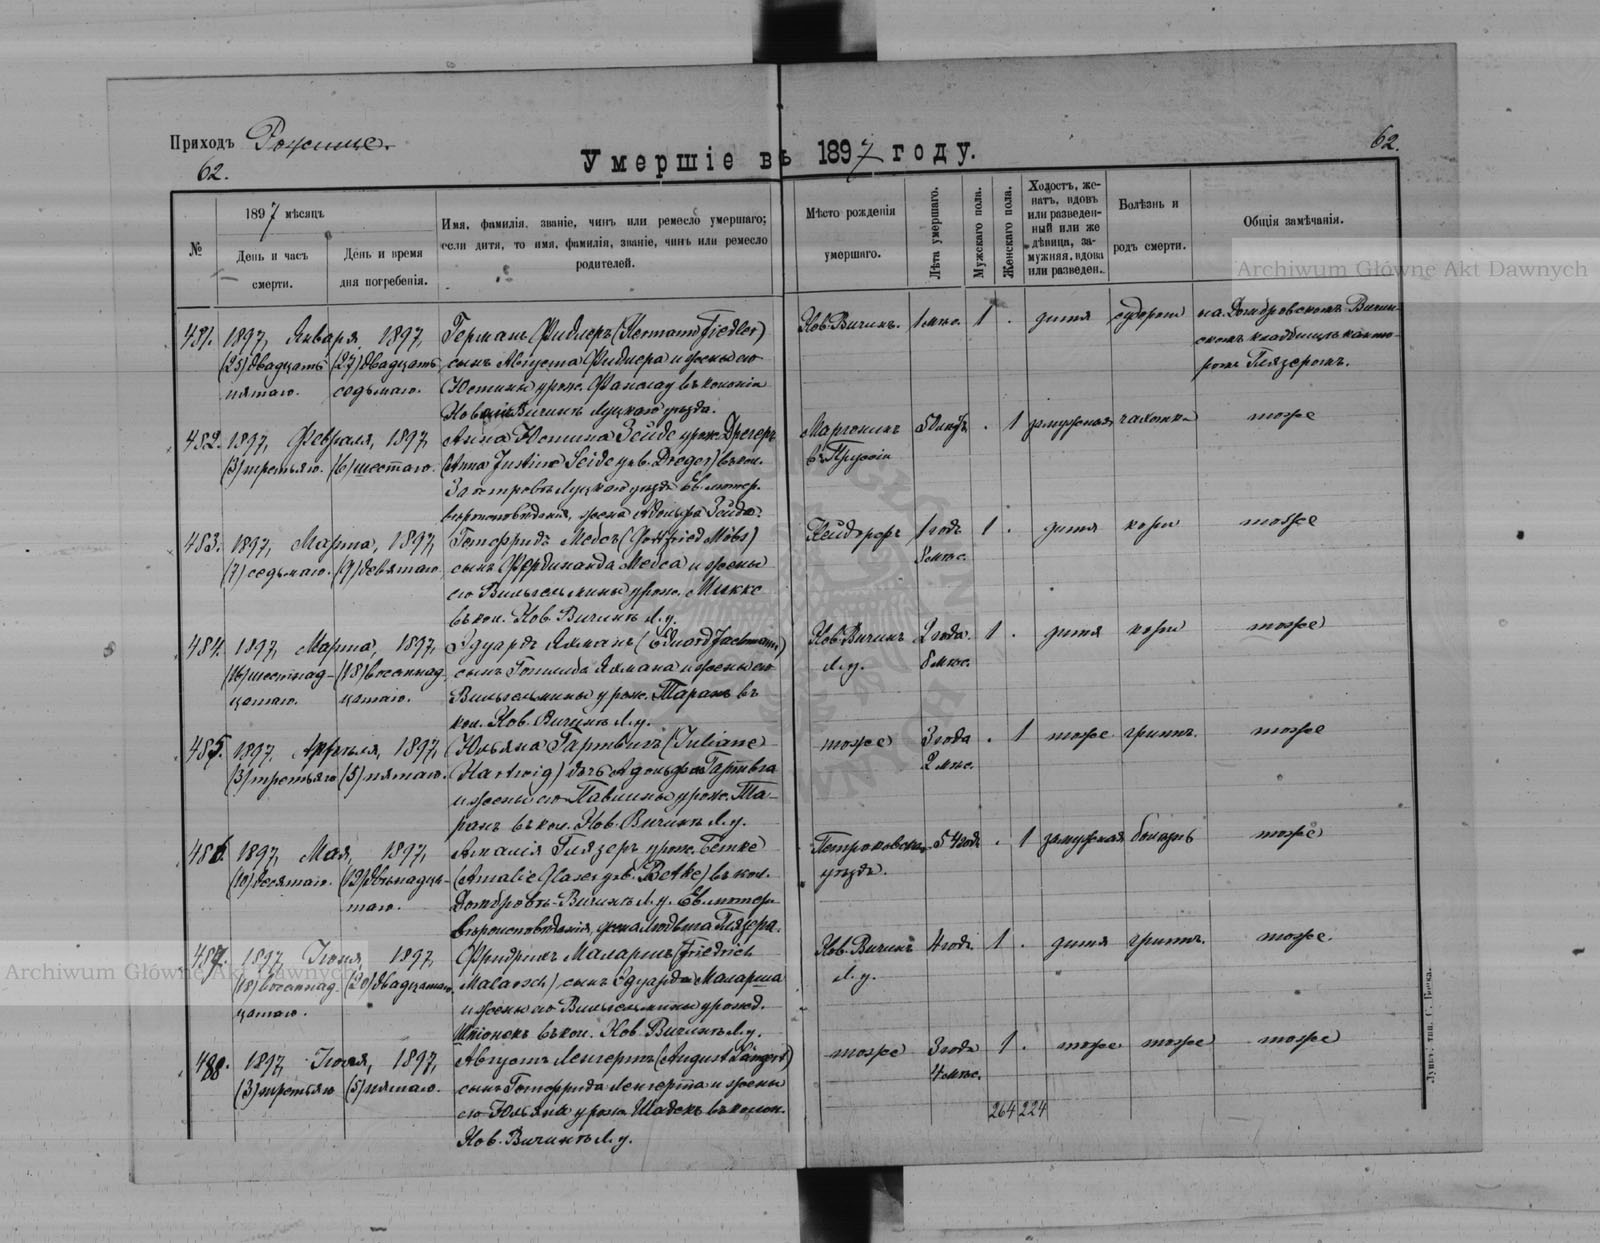 Приходъ Рожище.
62.
62.
Умершіе въ 1897 году.
№
1897 мѣсяцъ
День и часъ
смерти.
День и время
дня погребенія.
Имя, фамилія, званіе, чинъ или ремесло умершаго;
если дитя, то имя, фамилія, званіе, чинъ или ремесло
родителей.
Мѣсто рожденія
умершаго.
Лѣта умершаго.
Мужскаго пола.
Женскаго пола.
Холостъ, же-
натъ, вдовъ
или разведен-
ный или же
дѣвица, за-
мужняя, вдова
или разведен.
Болѣзнь и
родъ смерти.
Общія замѣчанія.
481. 1897, Января, 1897, Германъ Фидлеръ (Hermann Fiedler) Нов. Вичинъ. 1 мѣс. 1 . дитя судороги на Домбровскомъ Вичин-
(25) двадцать (27) двадцать сынъ Августа Фидлера и жены его скомъ кладбищѣ канто-
пятаго. седьмаго. Юстины урож. въ колоніи ромъ Глязеромъ.
Новый Вичинъ Луцкаго уѣзда.
482. 1897, Февраля, 1897, Анна Юстина Зейде урож. Дрегеръ Маргонинъ 50 лѣтъ . 1 замужняя чахотка тоже
(3) третьяго. (6) шестаго. (Anna Justine Seide geb. Dreger) въ кол. въ Пруссіи
Луцкаго уѣзда Ев. лютер.
вѣроисповѣданія, жена Адольфа Зейде.
483. 1897, Марта, 1897, Готфридъ Мебсъ (Gottfried Möbs) Нейдорфъ 1 годъ 1 . дитя корь тоже
(7) седьмаго. (9) девятаго. сынъ Фердинанда Мебса и жены 8 мѣс.
его Вильгельмины урож. Микке
въ кол. Нов. Вичинъ Л. у.
484. 1897, Марта, 1897, Эдуардъ Яхманъ (Eduard Jachmann) Нов. Вичинъ 2 года. 1 . дитя корь тоже
(16) шестнад- (18) восемнад- сынъ Готлиба Яхмана и жены его Л. у. 8 мѣс.
цатаго. цатаго. Вильгельмины урож. Таранъ въ
кол. Нов. Вичинъ Л. у.
485. 1897, Апрѣля, 1897, Юльяна Гартвигъ (Juliane тоже 3 года . 1 тоже гриппъ. тоже
(3) третьяго (5) пятаго. Hartwig) дочь Адольфа Гартвига 2 мѣс.
и жены его Павлины урож. Та-
ранъ въ кол. Нов. Вичинъ Л. у.
486. 1897, Мая, 1897, Амалія Глязеръ урож. Бетке Петроковскаго 54 года . 1 замужняя болѣзнь тоже
(10) десятаго. (12) двѣнадца- (Amalie Glaser geb. Betke) въ кол. уѣзда.
таго. Домбровъ-Вичинъ Л. у. Ев. лютер.
вѣроисповѣданія, жена Людвига Глязера.
487. 1897, Іюня, 1897, Фридрихъ Маларшъ (Friedrich Нов. Вичинъ 4 года 1 . дитя гриппъ. тоже.
(18) восемнад- (20) двадцатаго. Malarsch) сынъ Эдуарда Маларша Л. у.
цатаго. и жены его Вильгельмины урожд.
въ кол. Нов. Вичинъ Л. у.
488. 1897, Іюля, 1897, Августъ Ленгертъ (August Längert) тоже 3 года 1 . тоже тоже тоже
(3) третьяго (5) пятаго. сынъ Готфрида Ленгерта и жены 4 мѣс.
его Юльяны урож. Шадекъ въ колон.
Нов. Вичинъ Л. у.
264 224
Archiwum Główne Akt Dawnych
Archiwum Główne Akt Dawnych